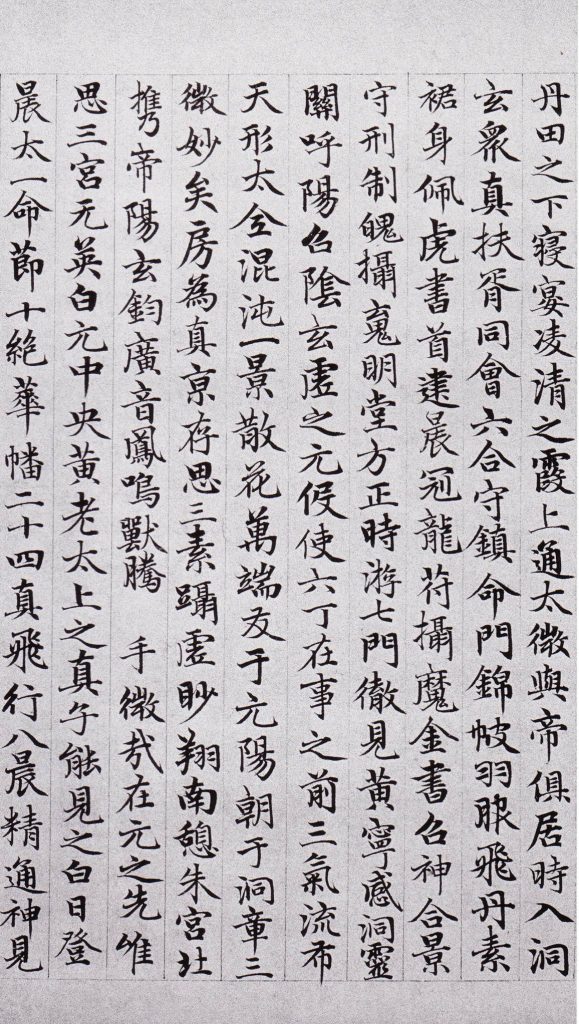 丹田之下寢宴凌清之霞上通太微與帝俱居時入洞
玄眾真扶胥同會六合守鎮命門錦帔羽服飛丹素
裙身佩虎書首建晨冠龍苻攝魔金書召神合景
守刑制魄攝䰟明堂方正時游七門徹見黃寧感洞靈
關呼陽召陰玄虛之元役使六丁在事之前三氣流布
天形太仝混沌一景散花萬端友于元陽朝于洞章三
微妙矣房為真京存思三素躡虛眇翔南憩朱宮北
攜帝陽玄鈞廣音鳳鳴獸騰　手微哉在元之先惟
思三宮无英白元中央黃老太上之真子能見之白日登
晨太一命節十絕華幡二十四真飛行八晨精通神見